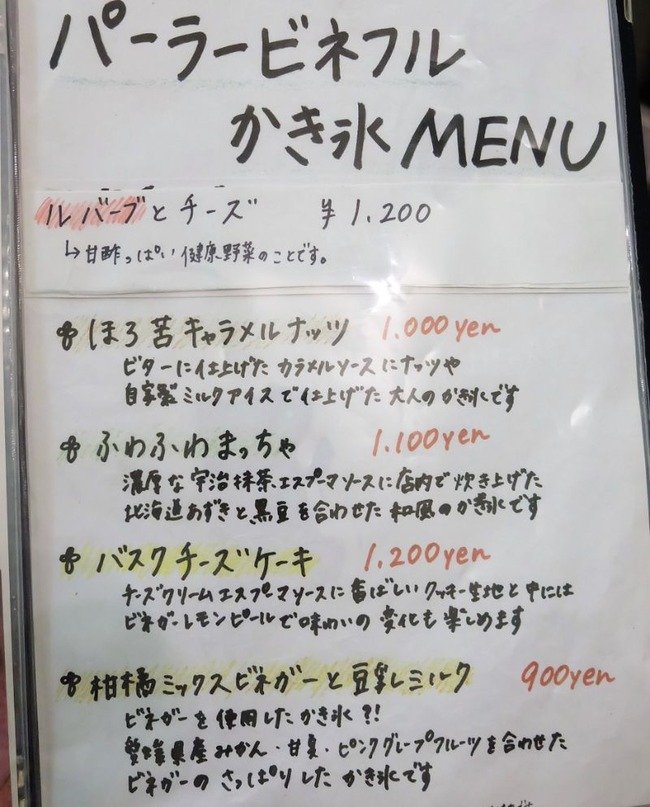 パーラービネフル
かき氷 MENU
ルバーブとチーズ ¥1.200
↳甘酢っぱい健康野菜のことです。
ほろ苦キャラメルナッツ 1.000yen
ビターに仕上げたカラメルソースにナッツや
自家製ミルクアイスで仕上げた大人のかき氷です
ふわふわまっちゃ 1.100yen
濃厚な宇治抹茶エスプーマソースに店内で炊き上げた
北海道あずきと黒豆を合わせた和風のかき氷です
バスクチーズケーキ 1.200yen
チーズクリームエスプーマソースに香ばしいクッキー生地と中には
ビネガーレモンピールで味わいの変化も楽しめます
柑橘ミックスビネガーと豆乳ミルク 900yen
ビネガーを使用したかき氷?!
愛媛県産みかん・甘夏・ピンクグレープフルーツを合わせた
ビネガーのさっぱりしたかき氷です